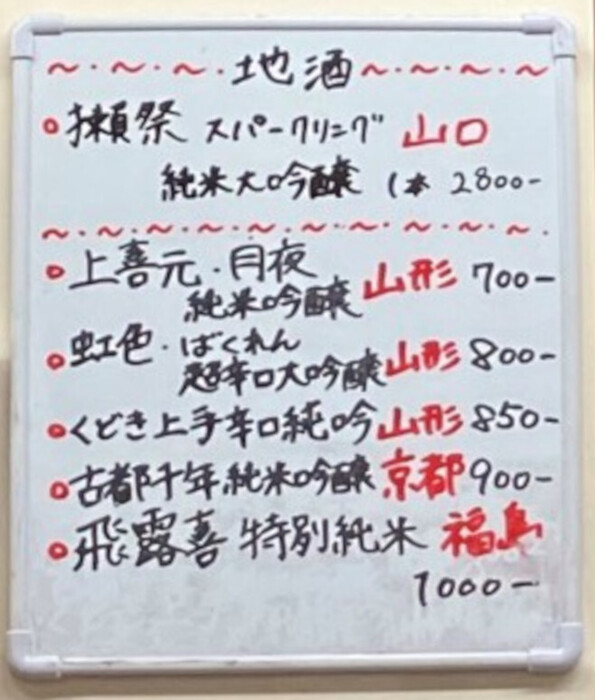 ~・~・~・地酒~・~・~・~
○獺祭 スパークリング 山口
純米大吟醸 1本 2800-
~・~・~・~・~・~・~・~・~・~・
○上喜元・月夜 山形 700-
純米吟醸
○虹色・ばくれん 山形 800-
超辛口大吟醸
○くどき上手辛口純吟 山形 850-
○古都千年純米吟醸 京都 900-
○飛露喜 特別純米 福島
1000-